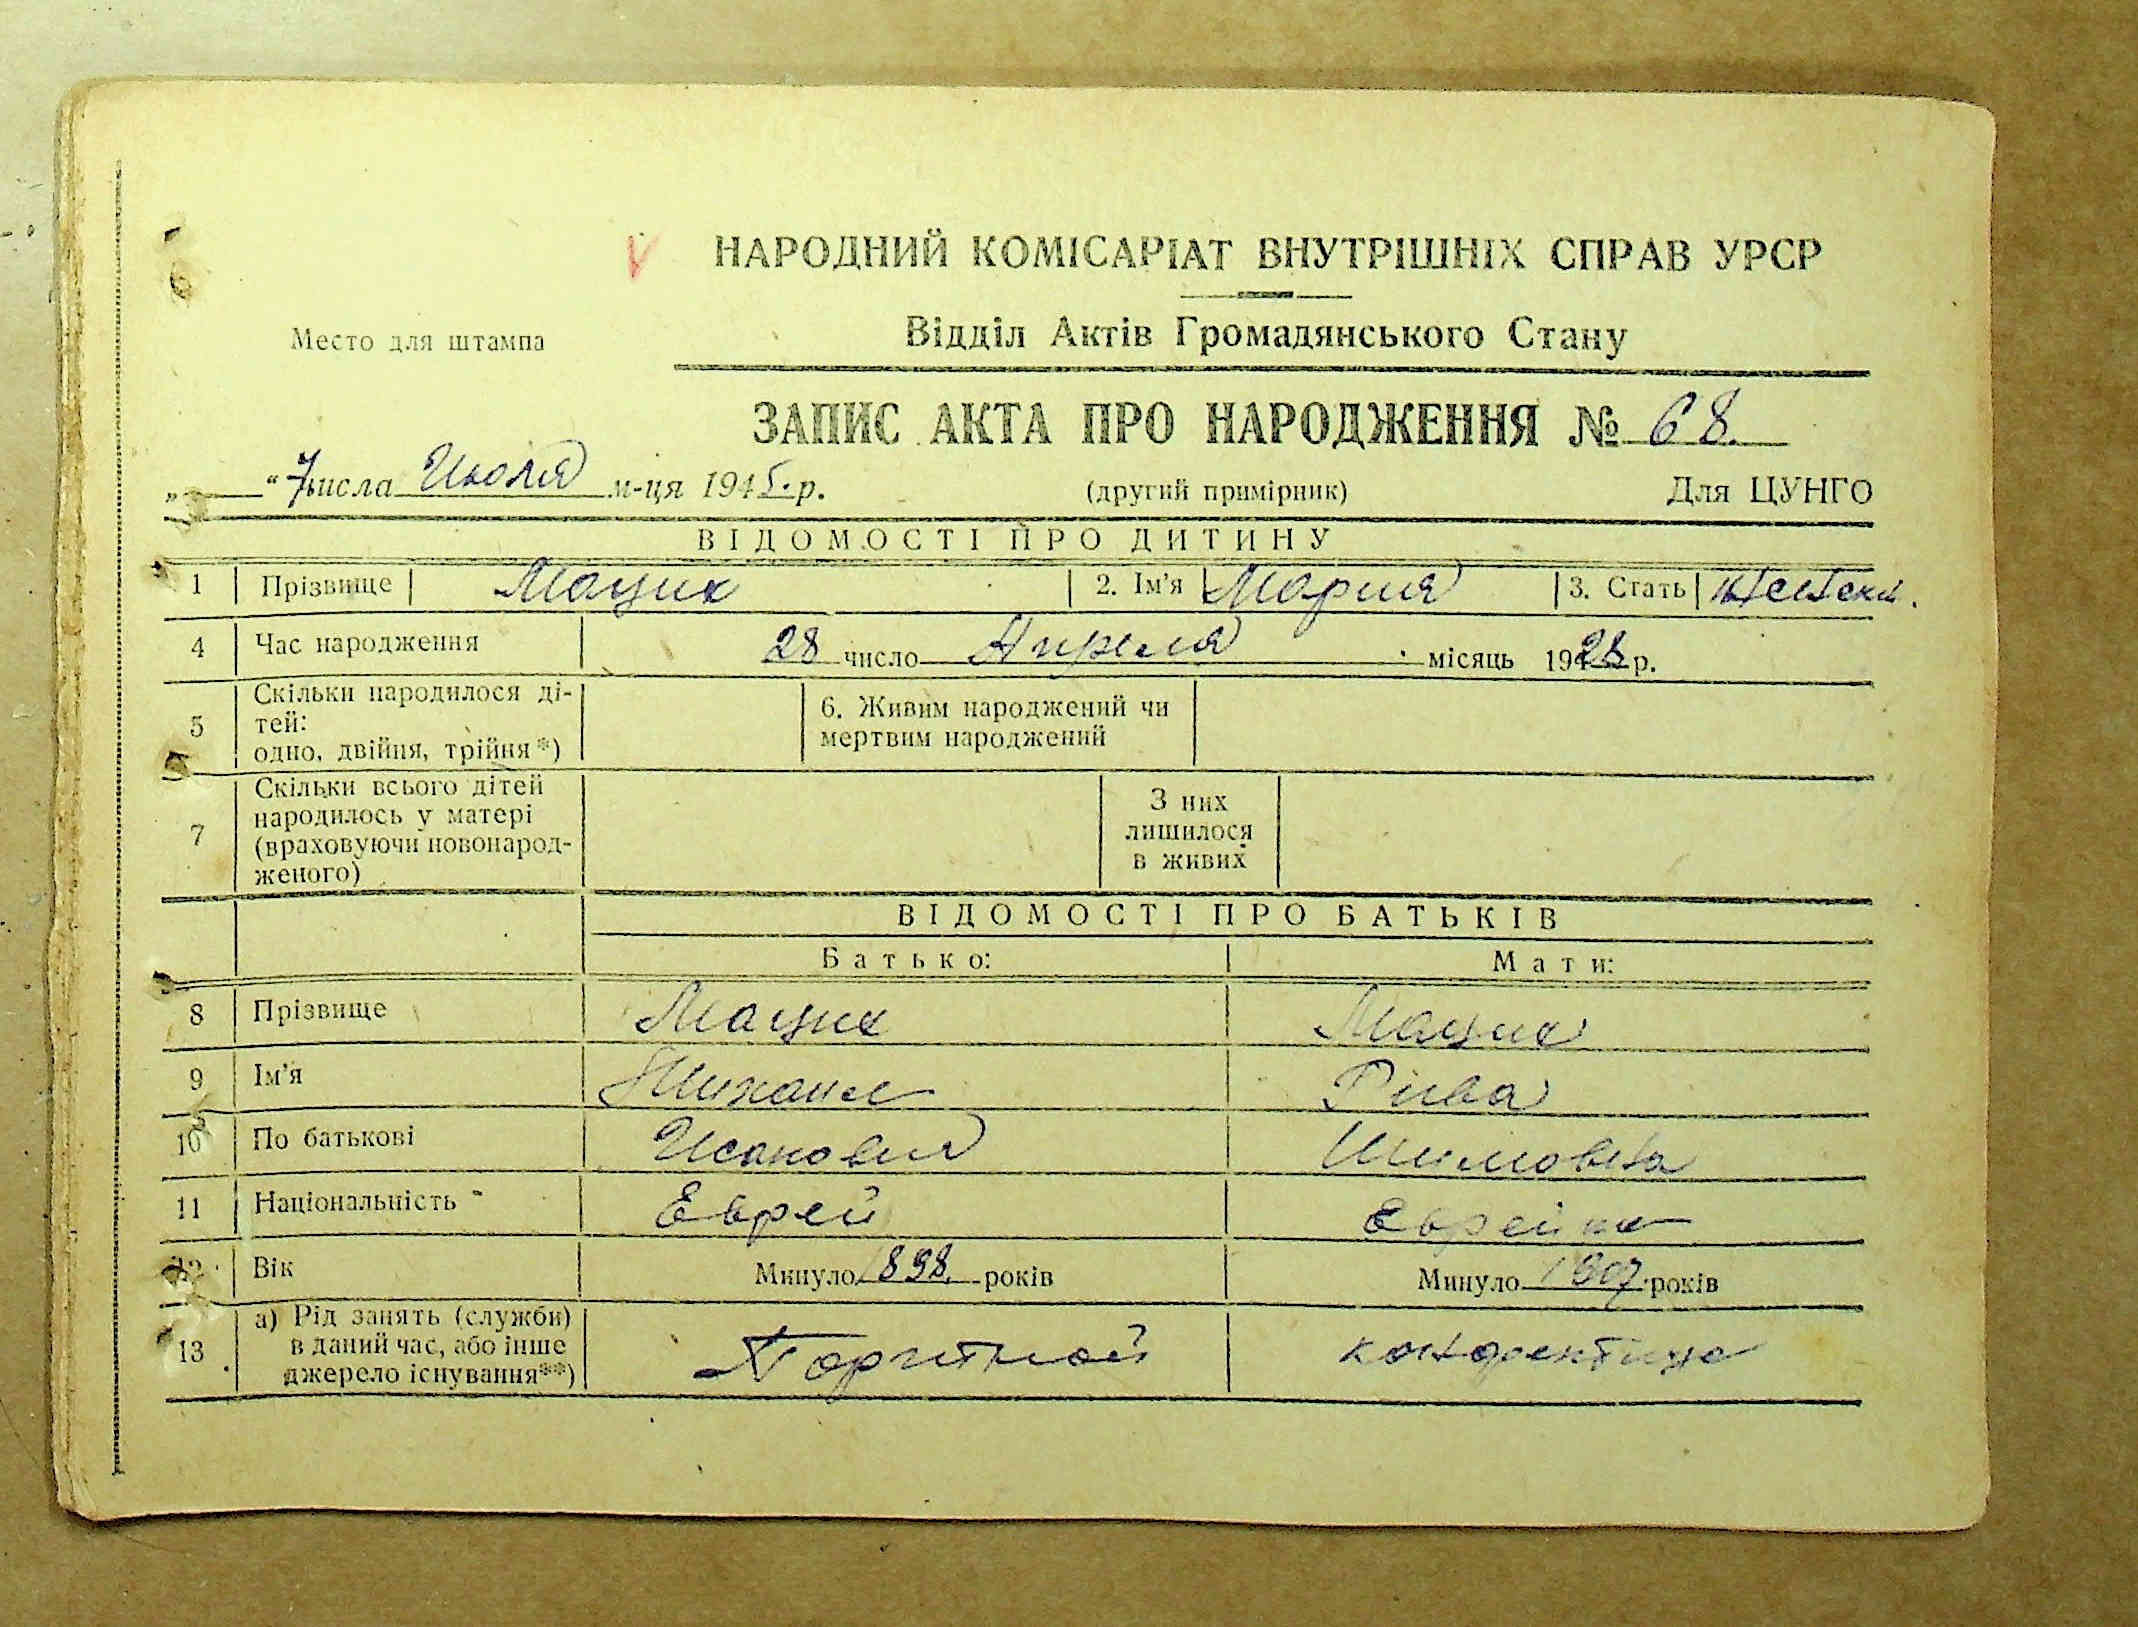 НАРОДНИЙ КОМІСАРІАТ ВНУТРІШНІХ СПРАВ УРСР
Место для штампа
Відділ Актів Громадянського Стану
ЗАПИС АКТА ПРО НАРОДЖЕННЯ № 68.
„ “ 7 числа Июля м-ця 1945. р.
(другий примірник)
Для ЦУНГО
ВІДОМОСТІ ПРО ДИТИНУ
1 Прізвище Мацик 2. Ім'я Мария 3. Стать женск.
4 Час народження 28 число Апреля місяць 1928 р.
5 Скільки народилося ді-
тей:
одно, двійня, трійня*)
6. Живим народжений чи
мертвим народжений
7 Скільки всього дітей
народилось у матері
(враховуючи новонарод-
женого)
З них
лишилося
в живих
ВІДОМОСТІ ПРО БАТЬКІВ
Батько: Мати:
8 Прізвище Мацик Мацик
9 Ім'я Михаил Рива
10 По батькові Шимовна
11 Національність Еврей Еврейка
12 Вік Минуло 1898. років Минуло 1907. років
13 а) Рід занять (служби)
в даний час, або інше
джерело існування**)
Портной